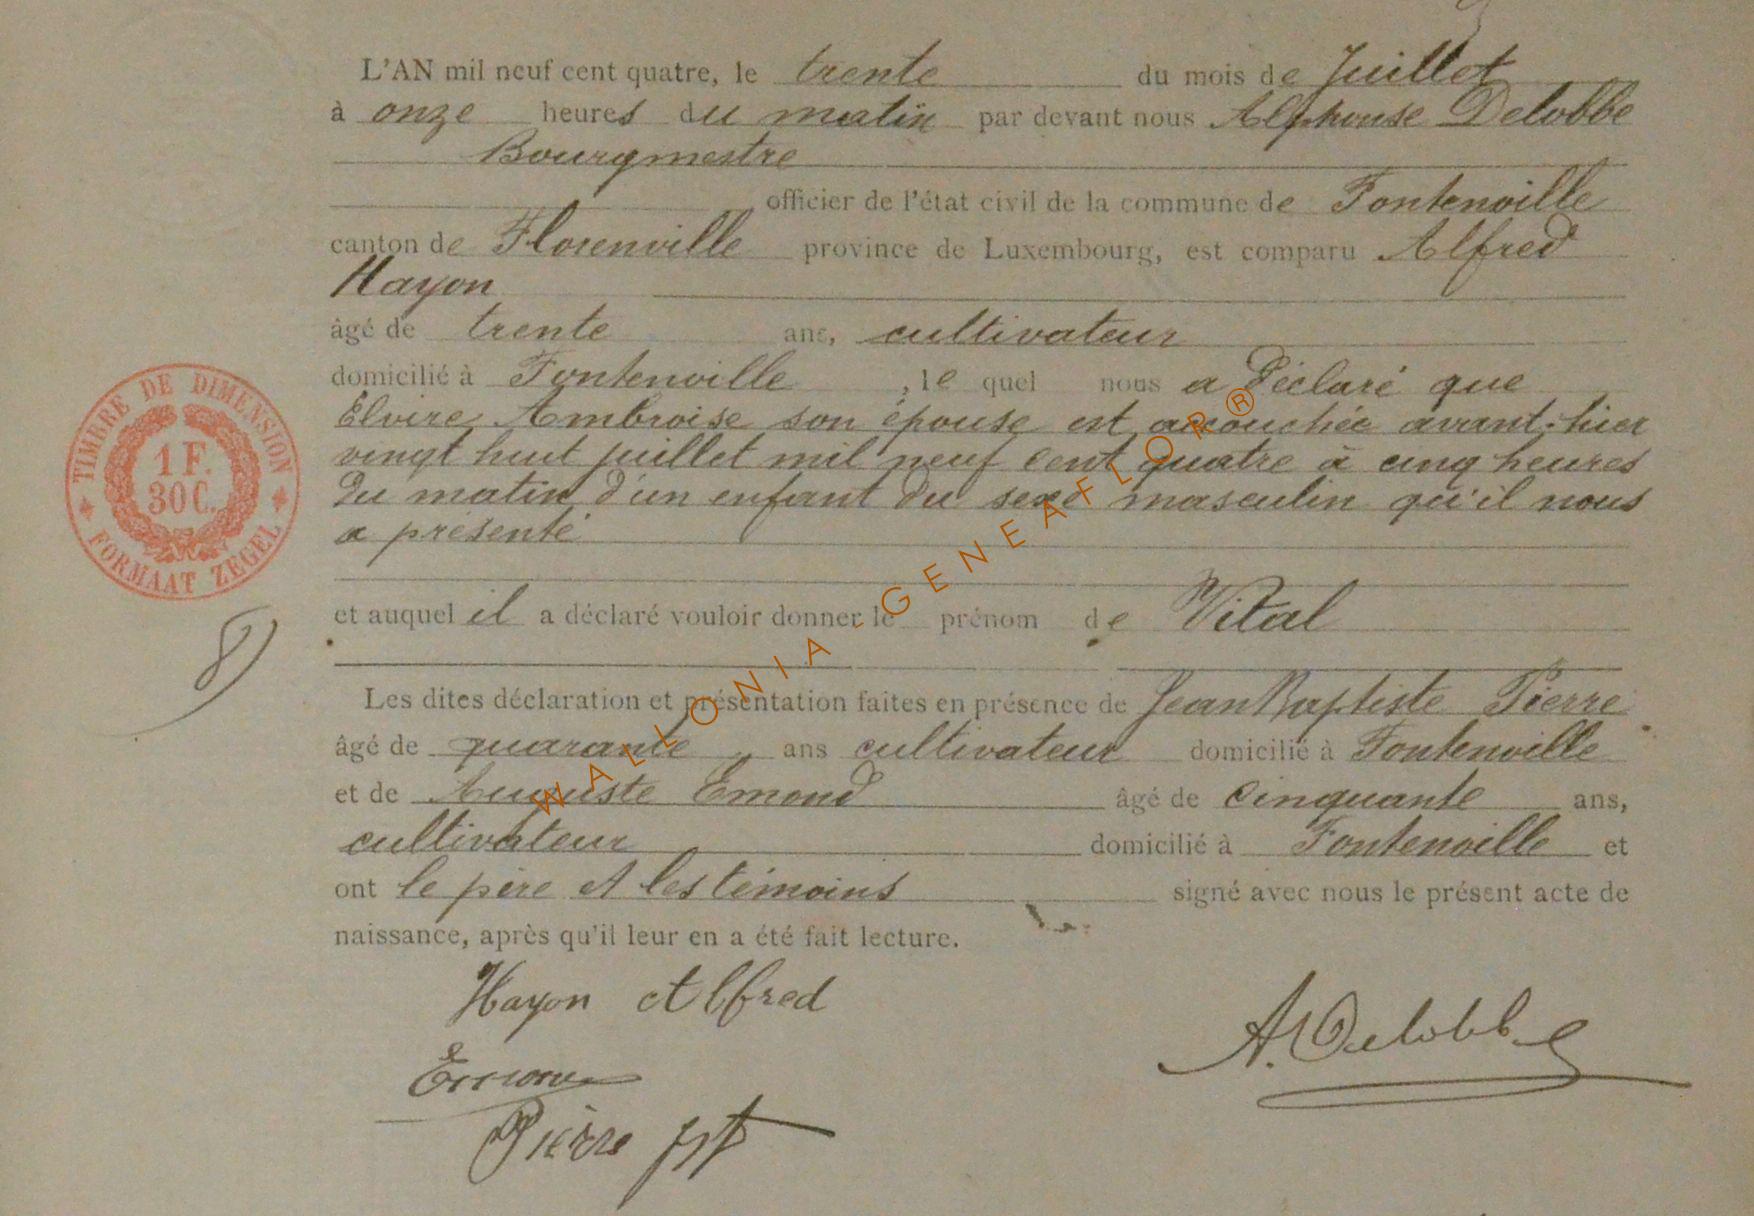 L'AN mil neuf cent quatre, le trente du mois de Juillet
à onze heures du matin par devant nous Alphonse Delobbe
Bourgmestre
officier de l'état civil de la commune de Fontenoille
canton de Florenville province de Luxembourg, est comparu Alfred
Hayon
âgé de trente ans, cultivateur
domicilié à Fontenoille, le quel nous a déclaré que
Elvire Ambroise son épouse est accouchée avant-hier
vingt huit juillet mil neuf cent quatre à cinq heures
du matin d'un enfant du sexe masculin qu'il nous
a présenté
et auquel il a déclaré vouloir donner le prénom de Vital
Les dites déclaration et présentation faites en présence de Jean Baptiste Pierre
âgé de quarante ans cultivateur domicilié à Fontenoille
et de Auguste Emond âgé de cinquante ans,
cultivateur domicilié à Fontenoille et
ont le père et les témoins signé avec nous le présent acte de
naissance, après qu'il leur en a été fait lecture.
Hayon Alfred
A. Delobbe
Emond
Pierre
TIMBRE DE DIMENSION
1 F.
30 C.
FORMAAT ZEGEL
8
WALLONIA - GENEAFLOR ®